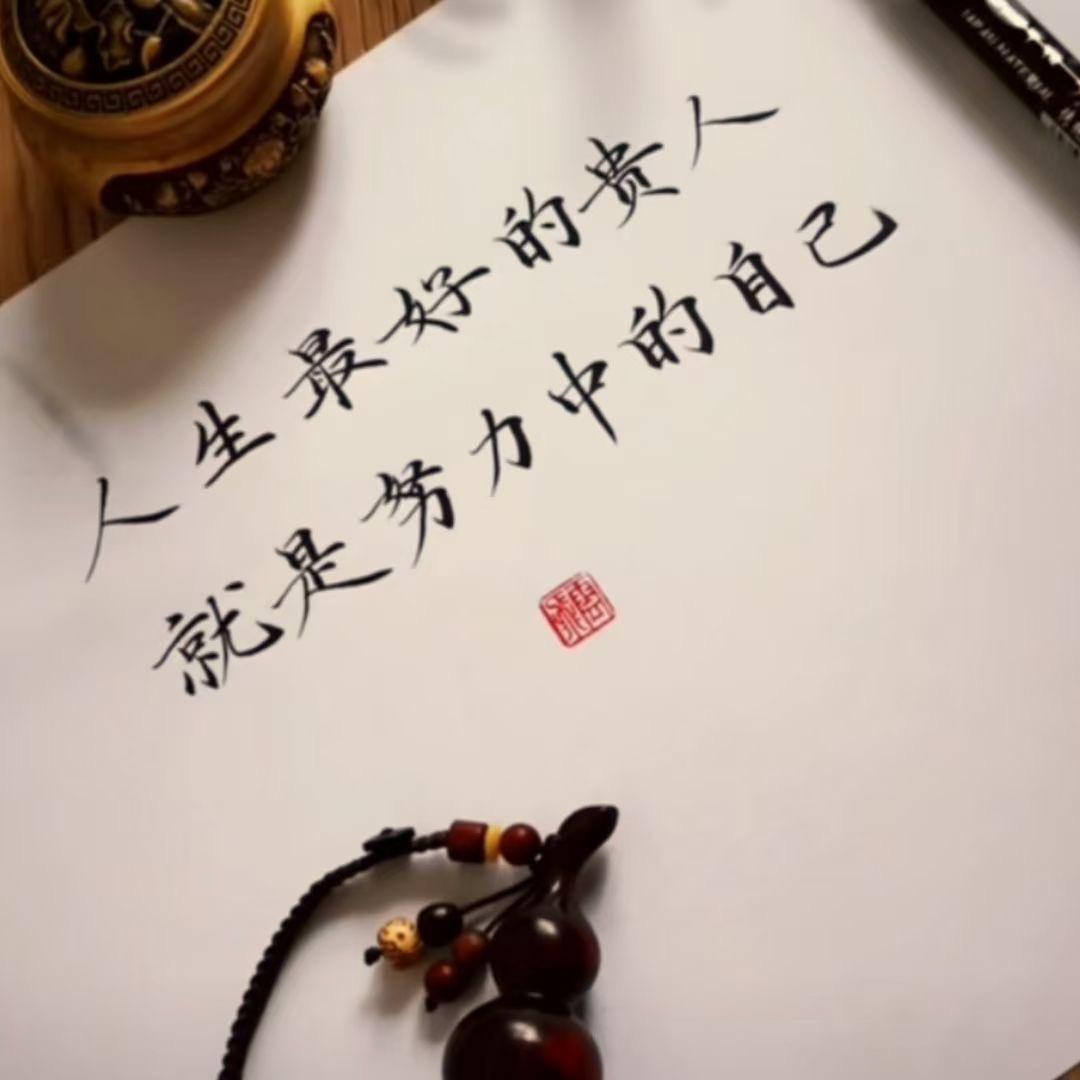 人生最好的贵人
就是努力中的自己